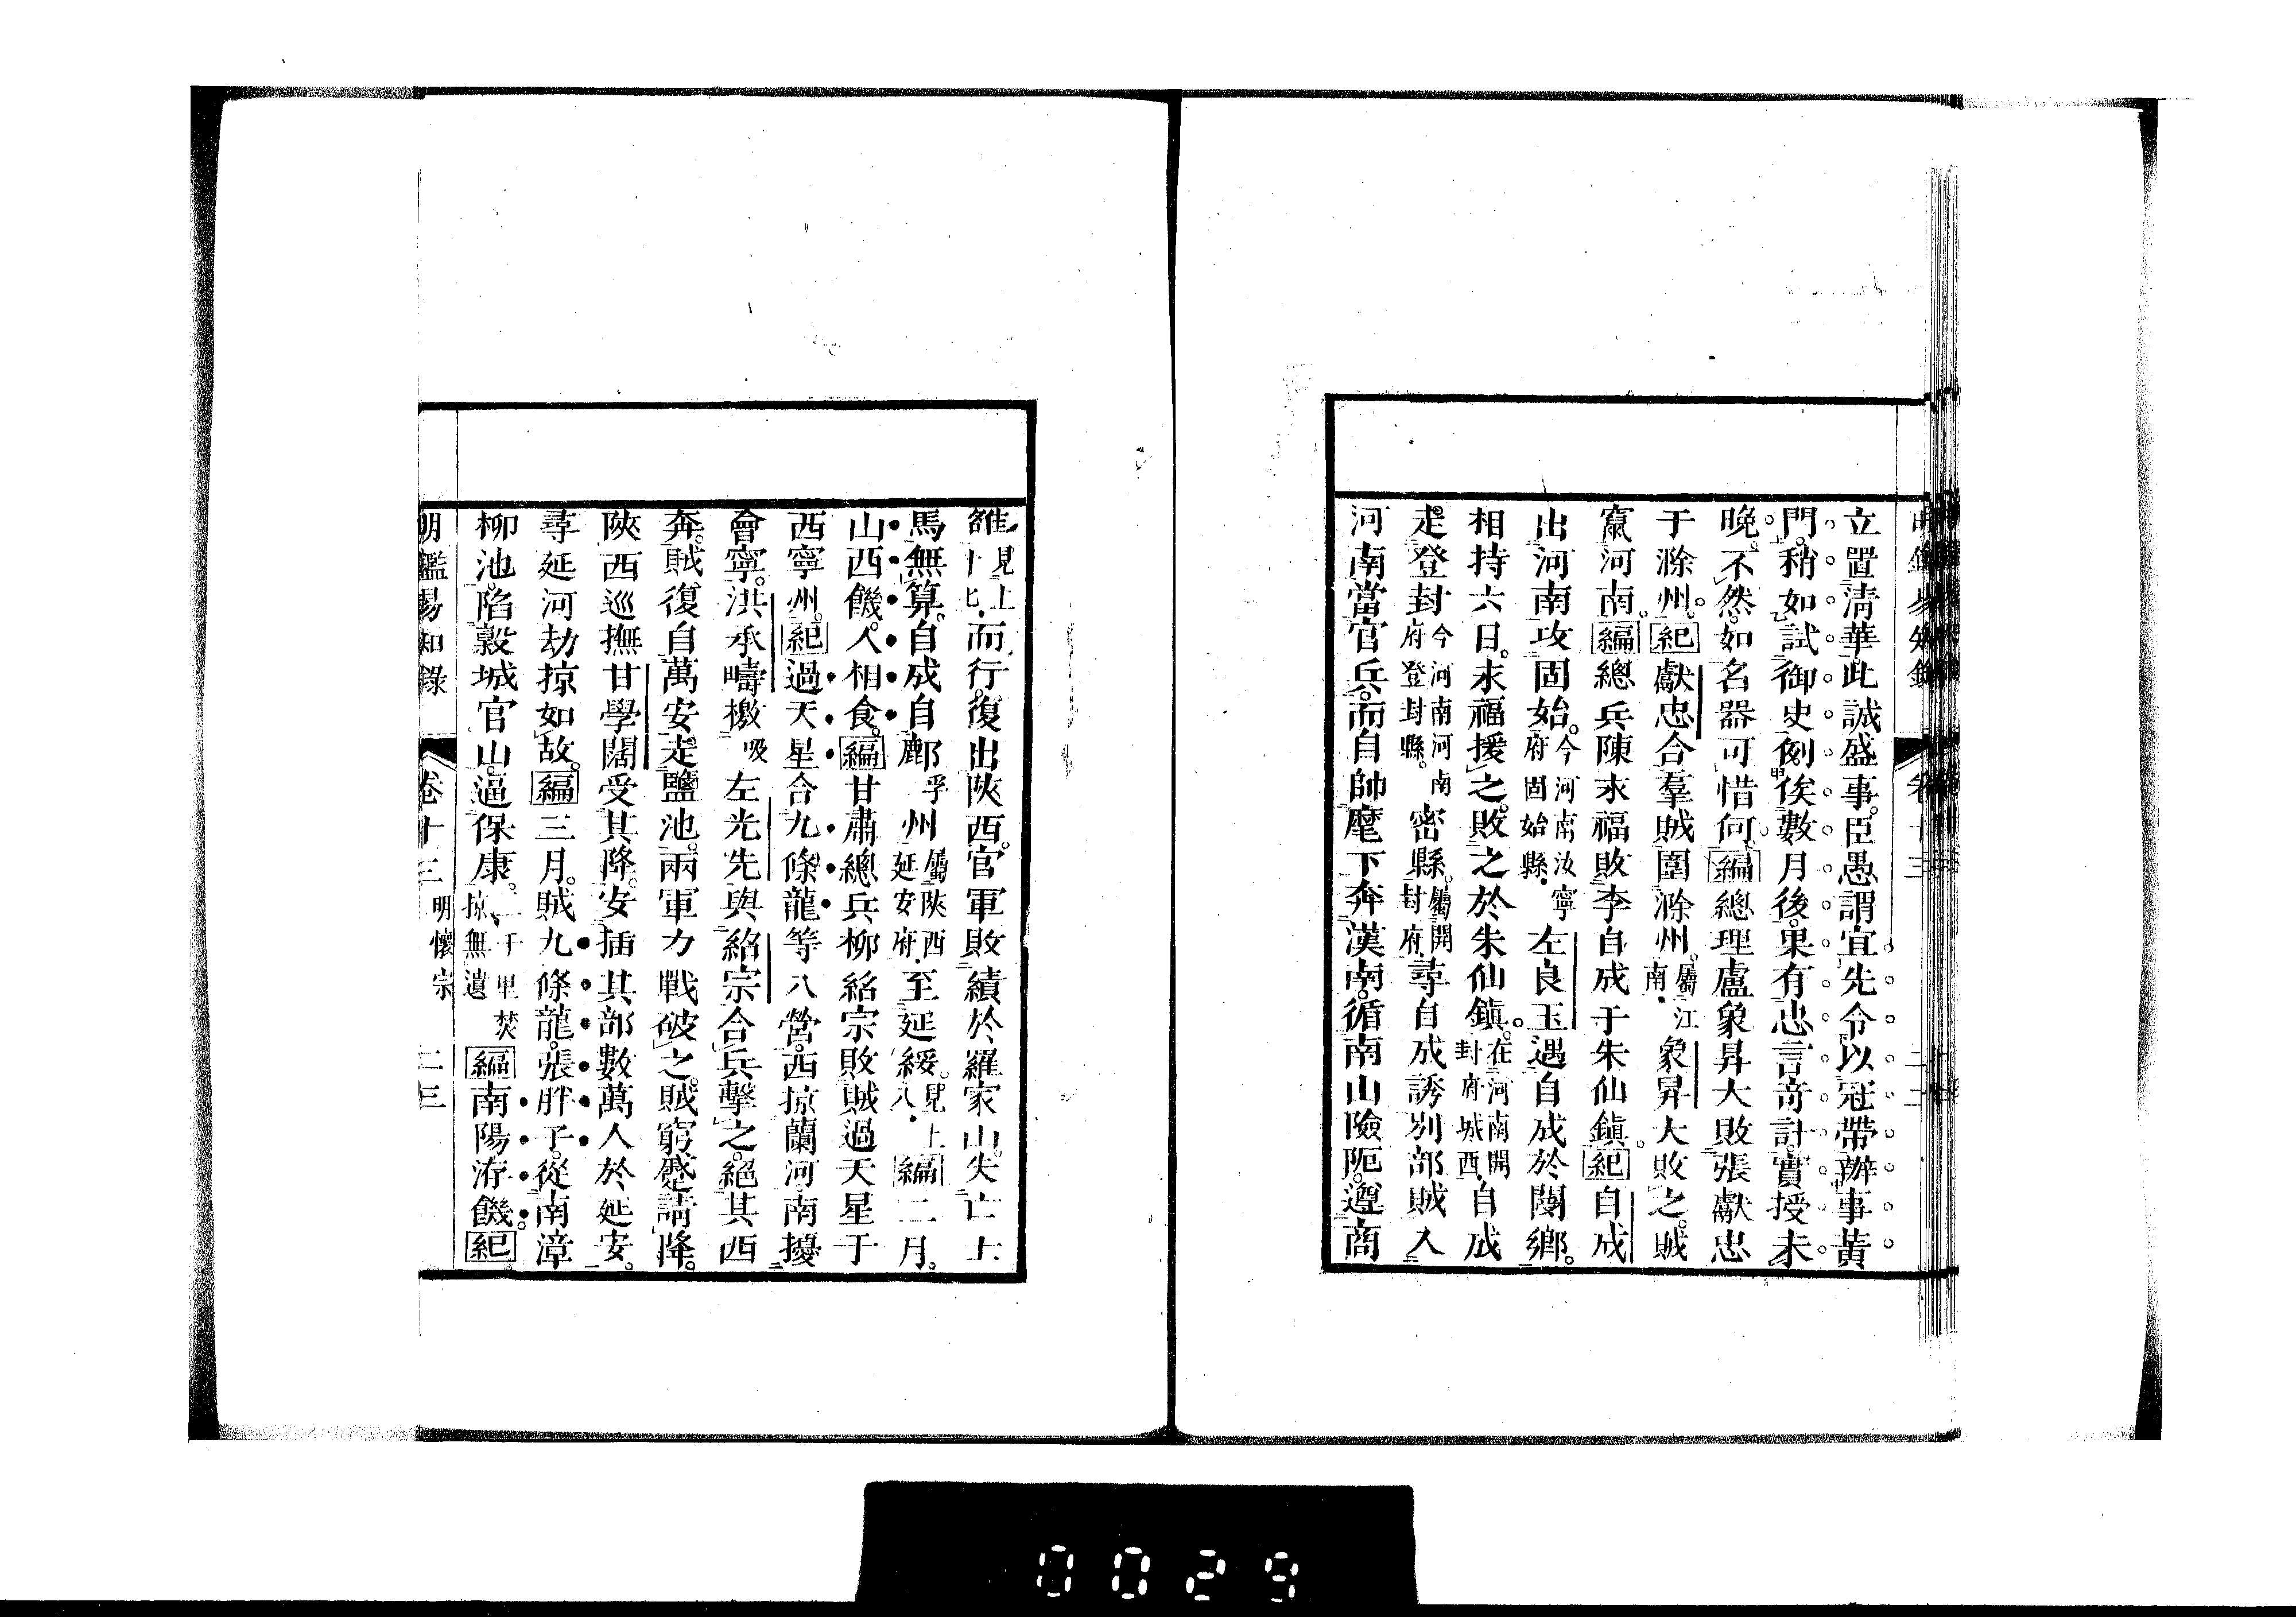 明鑑易知錄 卷十三 二二
立置淸華。此誠盛事。臣愚謂宜先令以冠帶辦事黃
門。稍如試御史例。俟數月後。果有忠言奇計。實授未
晚。不然。如名器可惜何。編總理盧象昇大敗張獻忠
于滁州。紀獻忠合羣賊圍滁州。屬江南。象昇大敗之。賊
竄河南。編總兵陳永福敗李自成于朱仙鎭。紀自成
出河南攻固始。今河南汝寧府固始縣。左良玉遇自成於閿鄉。
相持六日。永福援之。敗之於朱仙鎭。在河南開封府城西。自成
走登封今河南河南府登封縣。密縣。屬開封府。尋自成誘別部賊入
河南當官兵。而自帥麾下奔漢南。循南山險阨。遵商
雒見上十七。而行。復出陝西。官軍敗績於羅家山。失亡士
馬無算。自成自鄜孚州屬陝西延安府。至延綏。見上八。編二月。
山西饑。人相食。編甘肅總兵柳紹宗敗賊過天星于
西寧州。紀過天星合九條龍等八營。西掠蘭河。南擾
會寧。洪承疇檄吸左光先與紹宗合兵擊之。絕其西
奔。賊復自萬安走鹽池。兩軍力戰破之。賊窮蹙請降。
陝西巡撫甘學闊受其降。安插其部數萬人於延安。
尋延河劫掠如故。編三月。賊九條龍。張胖子。從南漳
柳池。陷穀城官山。逼保康。二千里焚掠無遺編南陽洊饑。紀
明鑑易知錄 卷十三 明懷宗 二三
0029